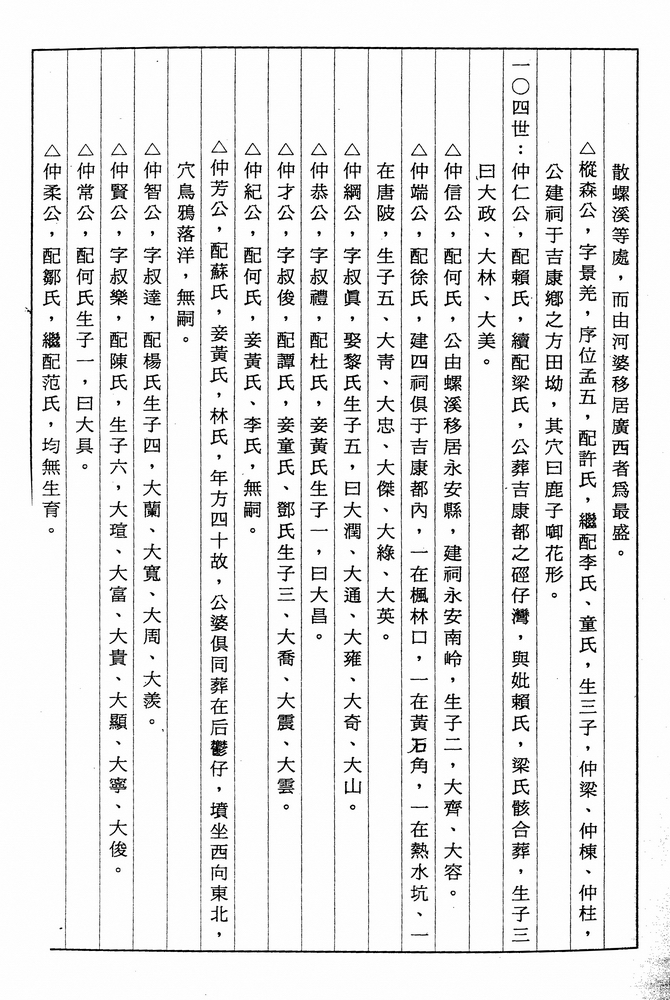 散螺溪等處，而由河婆移居廣西者爲最盛。
△樅森公，字景羌，序位孟五，配許氏，繼配李氏、童氏，生三子，仲梁、仲棟、仲柱，
公建祠于吉康鄉之方田坳，其穴曰鹿子啣花形。
一〇四世：仲仁公，配賴氏，續配梁氏，公葬吉康都之硜仔灣，與妣賴氏，梁氏骸合葬，生子三
曰大政、大林、大美。
△仲信公，配何氏，公由螺溪移居永安縣，建祠永安南岭，生子二，大齊、大容。
△仲端公，配徐氏，建四祠俱于吉康都內，一在楓林口，一在黃石角，一在熱水坑、一
在唐陂，生子五、大靑、大忠、大傑、大綠、大英。
△仲綱公，字叔眞，娶黎氏生子五，曰大潤、大通、大雍、大奇、大山。
△仲恭公，字叔禮，配杜氏，妾黃氏生子一，曰大昌。
△仲才公，字叔俊，配譚氏，妾童氏、鄧氏生子三、大喬、大震、大雲。
△仲紀公，配何氏，妾黃氏、李氏，無嗣。
△仲芳公，配蘇氏，妾黃氏，林氏，年方四十故，公婆俱同葬在后鬱仔，墳坐西向東北，
穴鳥鴉落洋，無嗣。
△仲智公，字叔達，配楊氏生子四，大蘭、大寬、大周、大羨。
△仲賢公，字叔樂，配陳氏，生子六，大瑄、大富、大貴、大顯、大寧、大俊。
△仲常公，配何氏生子一，曰大具。
△仲柔公，配鄒氏，繼配范氏，均無生育。